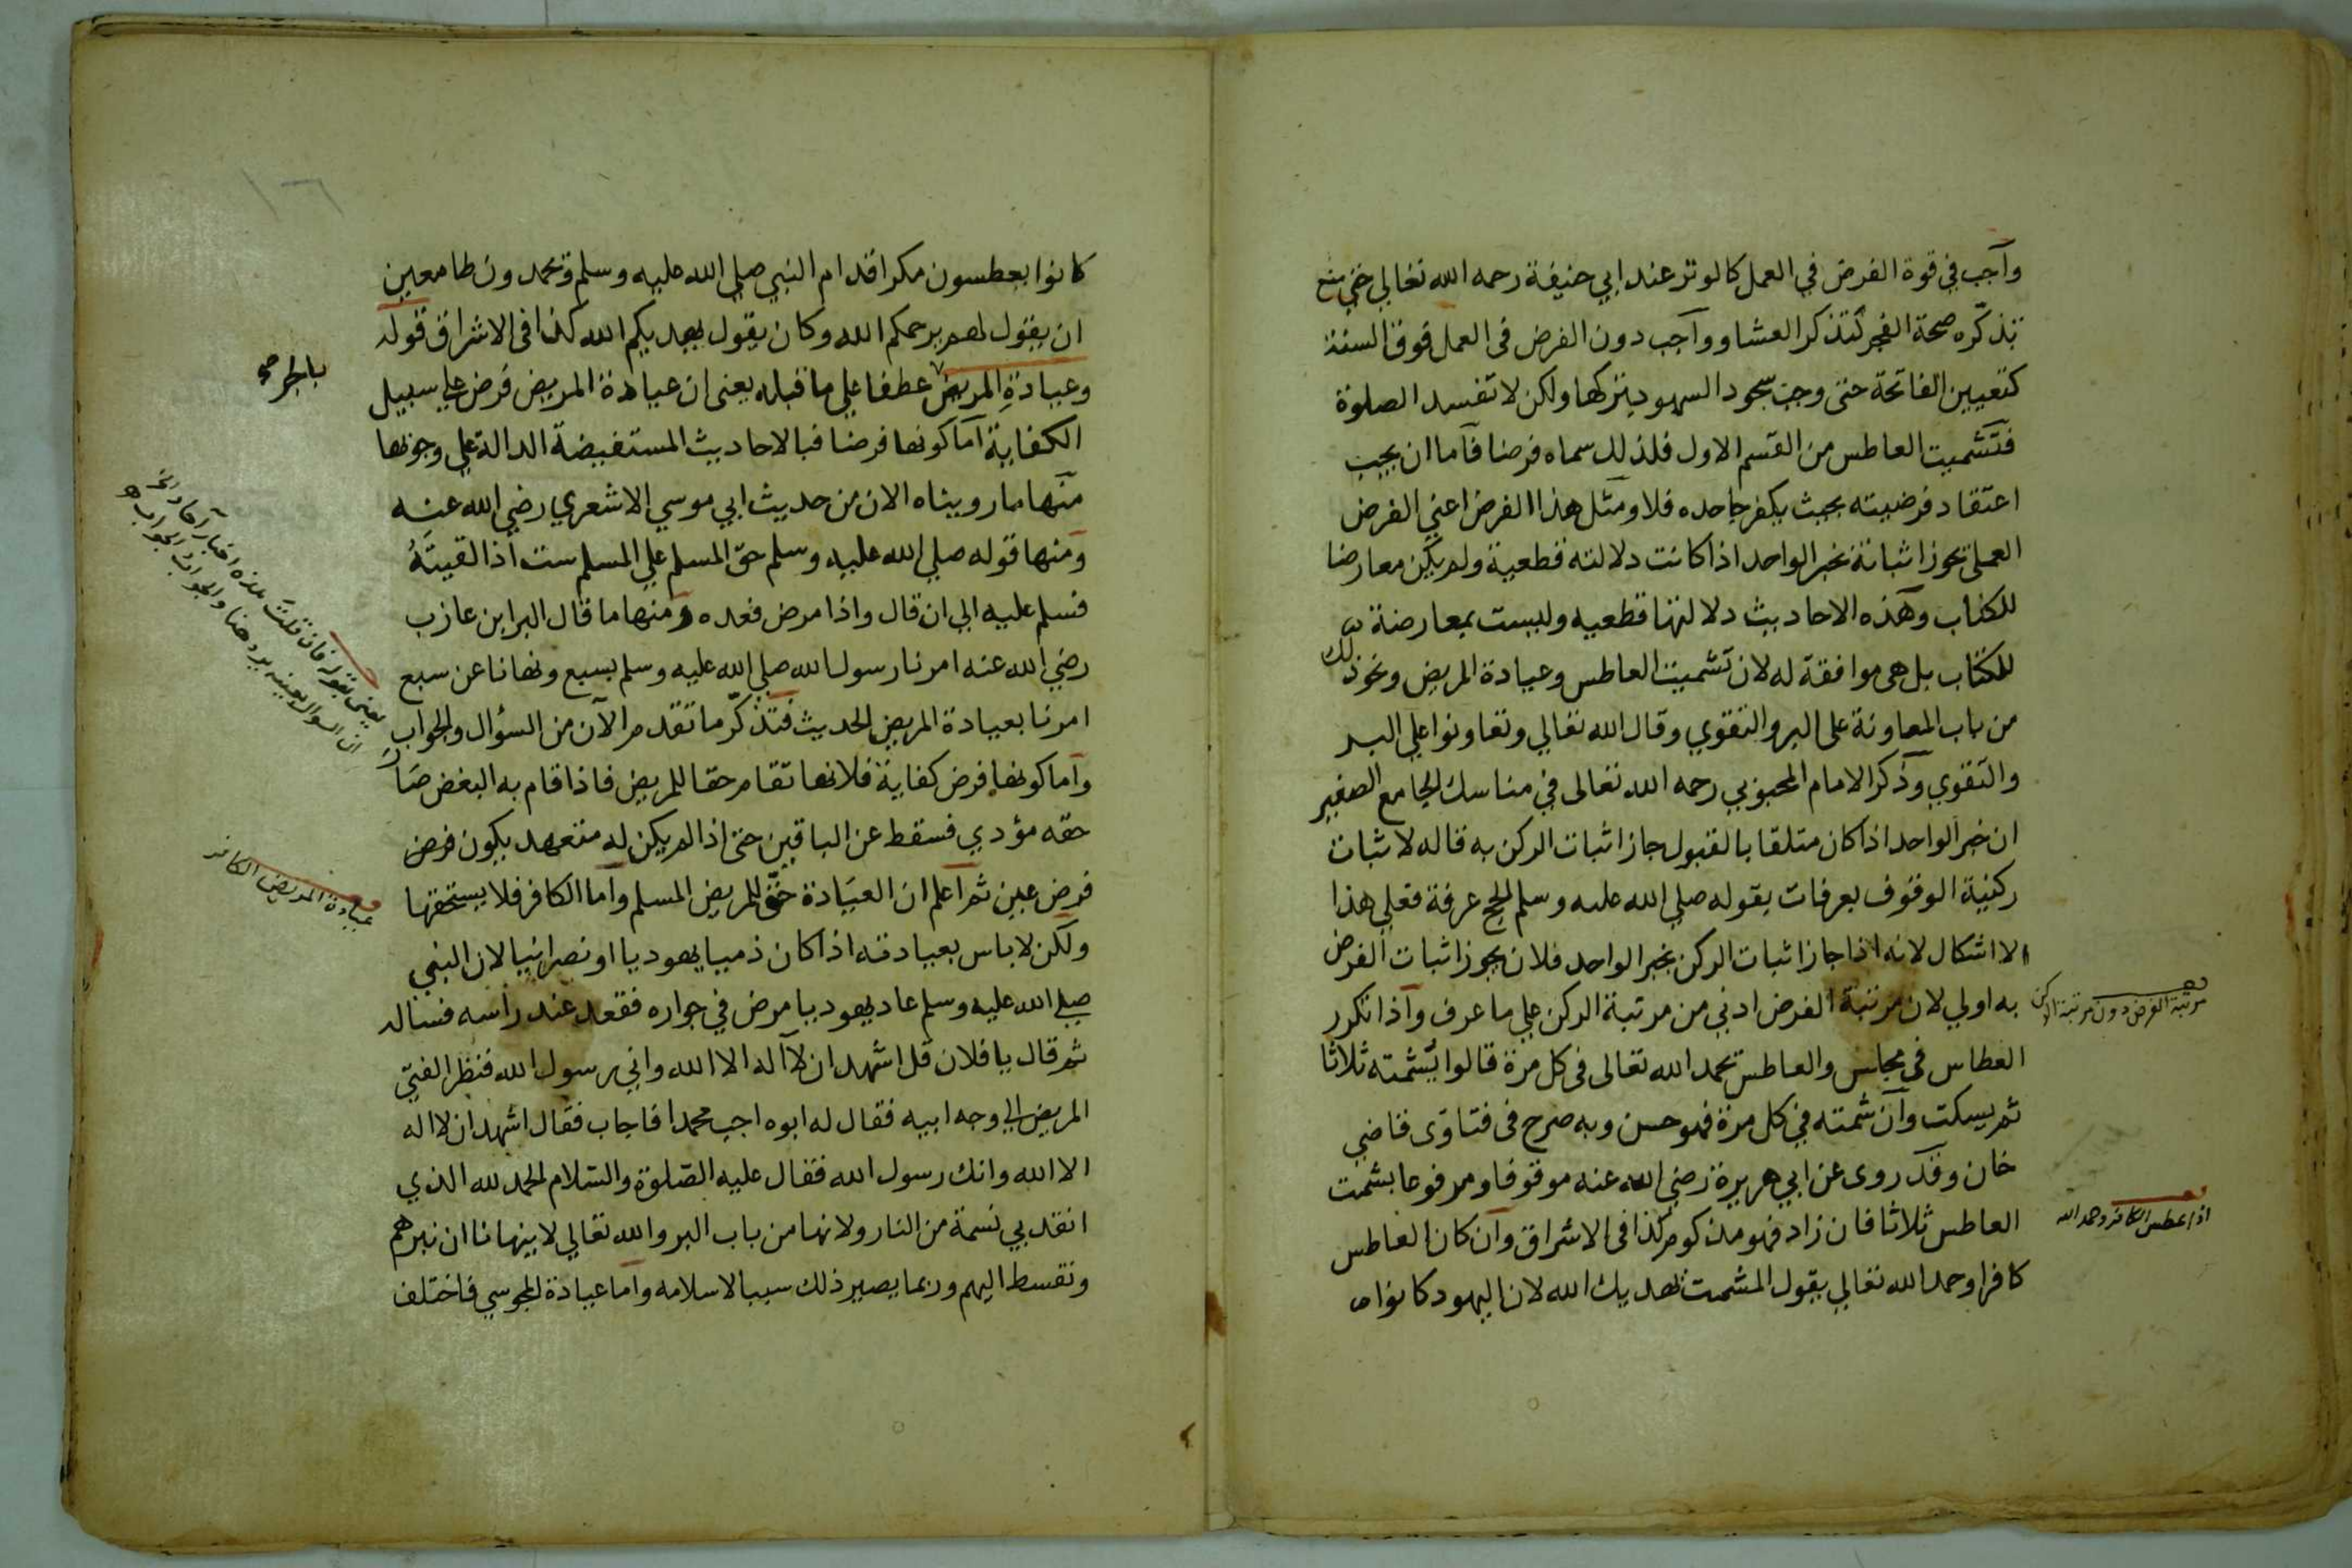 وآجب في قوة الفرض في العمل كالوتر عند ابي حنيفة رحمه الله تعالي حتي منع
تذكّره صحة الفجر كتذكر العشا وواجب دون الفرض في العمل فوق السنة
كتعيين الفاتحة حتى وجب سجود السهو بتركها ولكن لا تفسد الصلوة
فتشميت العاطس من القسم الاول فلذلك سماه فرضا فاما ان يجب
اعتقاد فرضيته بحيث يكفر جاحده فلا ومثل هذا الفرض اعني الفرض
العملي يجوز اثباته بخبر الواحد اذا كانت دلالته قطعية ولم يكن معارضا
للكتاب وهذه الاحاديث دلالتها قطعيه وليست بمعارضة
للكتاب بل هى موافقة له لان تشميت العاطس وعيادة المريض ونحو ذلك
من باب المعاونة على البر والتقوي وقال الله تعالي وتعاونوا علي البر
والتقوي وذكر الامام المحبوبي رحمه الله تعالى في مناسك الجامع الصغير
ان خبر الواحد اذا كان متلقا بالقبول جاز اثبات الركن به قاله لاثبات
ركنية الوقوف بعرفات بقوله صلي الله عليه وسلم الحج عرفة فعلي هذا
لا اشكال لانه اذا جاز اثبات الركن بخبر الواحد فلان يجوز اثبات الفرض
به اولي لان مرتبة الفرض ادني من مرتبة الركن علي ما عرف واذا تكرر
العطاس في مجلس والعاطس يحمد الله تعالى فى كل مرة قالوا يشمته ثلاثا
ثم يسكت وان شمته في كل مرة فهو حسن وبه صرح فى فتاوى قاضي
خان وقد روى عن ابي هريرة رضي الله عنه موقوفا ومرفوعا يشمت
العاطس ثلاثا فان زاد فهو مذكوم كذا فى الاشراق وان كان العاطس
كافرا وحمد الله تعالي يقول المشمت يهديك الله لان اليهود كانوا
مرتبة الفرض دون مرتبة الركن
اذا عطس الكافر وحمد الله
كانوا يعطسون مكرا قدام النبي صلي الله عليه وسلم ويحمدون طامعين
ان يقول لهم يرحمكم الله وكان يقول يهديكم الله كذا فى الاشراق قوله
وعيادةِ المريض عطفا علي ما قبله يعنى ان عيادة المريض فرض علي سبيل
الكفاية اما كونها فرضا فبالاحاديث المستفيضة الدالة علي وجوبها
منها ما رويناه الان من حديث ابي موسي الاشعري رضي الله عنه
ومنها قوله صلي الله عليه وسلم حق المسلم علي المسلم ست اذا لقيتهُ
فسلم عليه الي ان قال واذا مرض فعده ومنها ما قال البرا بن عازب
رضي الله عنه امرنا رسول الله صلي الله عليه وسلم بسبع ونهانا عن سبع
امرنا بعيادة المريض الحديث فتذكّر ما تقدم الآن من السؤال والجواب
واما كونها فرض كفاية فلانها تقام حقا للمريض فاذا قام به البعض صار
حقه مؤدي فسقط عن الباقين حتى اذا لم يكن له متعهد يكون فرض
فرض عين ثم اعلم ان العيَادة حق للمريض المسلم واما الكافر فلا يستحقها
ولكن لا باس بعيادته اذا كان ذميا يهوديا او نصرانيا لان النبي
صلي الله عليه وسلم عاد يهوديا مرض في جواره فقعد عند راسه فساله
ثم قال يا فلان قل اشهد ان لا آله الا الله واني رسول الله فنظر الفتي
المريض الي وجه ابيه فقال له ابوه اجب محمدا فاجاب فقال اشهد ان لا اله
الا الله وانك رسول الله فقال عليه الصّلوة والسّلام الحمد لله الذي
انقذ بي نسمة من النار ولانها من باب البر والله تعالي لا ينهانا ان نبرهم
ونقسط اليهم وربما يصير ذلك سببا لاسلامه واما عيادة المجوسي فاختلف
بالجر
يعنى بقوله فان قلت هذه اخبار آحاد الخ
ان السوال بعينه يرد هنا والجواب الجواب
عيادة المريض الكافر